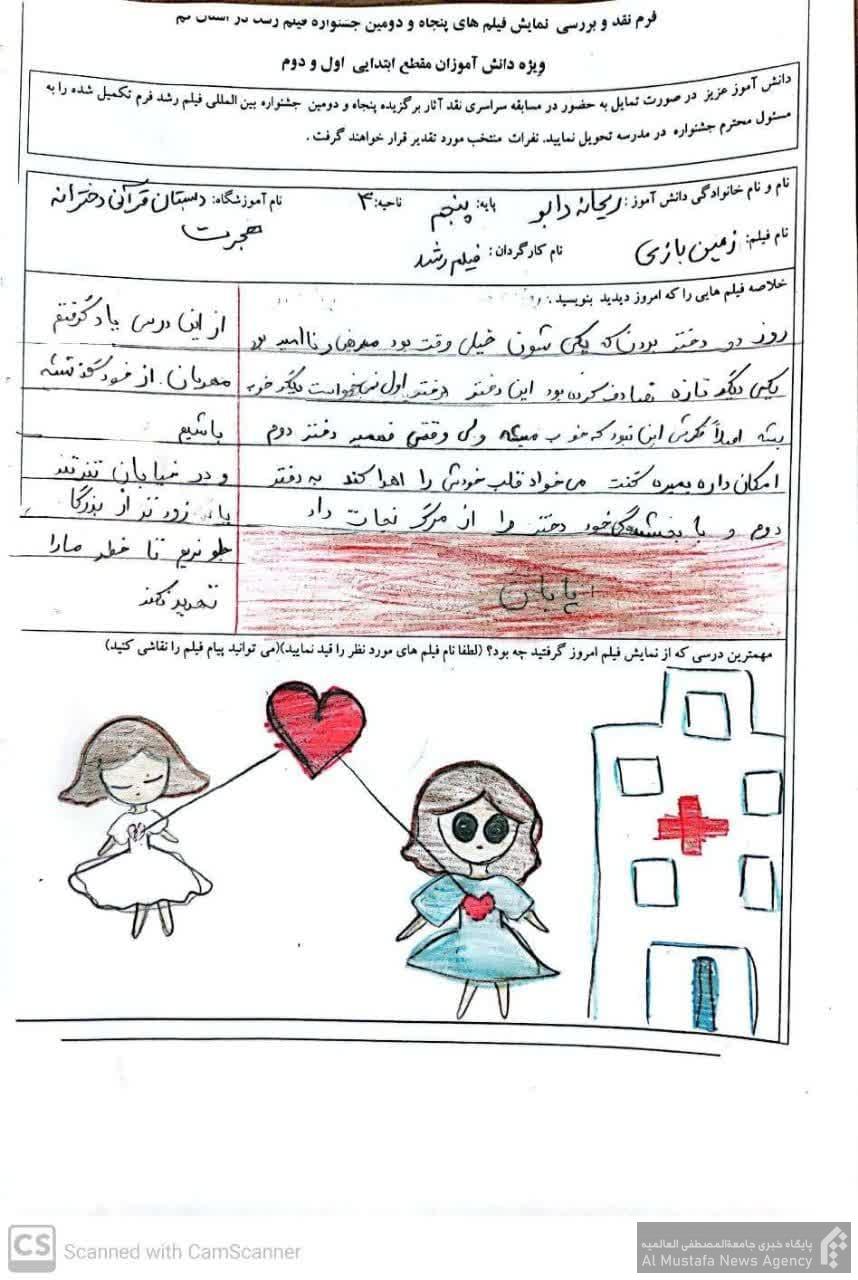 فرم نقد و بررسی نمایش فیلم های پنجاه و دومین جشنواره فیلم رشد در استان قم
ویژه دانش آموزان مقطع ابتدایی اول و دوم
دانش آموز عزیز در صورت تمایل به حضور در مسابقه سراسری نقد آثار برگزیده پنجاه و دومین جشنواره بین المللی فیلم رشد فرم تکمیل شده را به
مسئول محترم جشنواره در مدرسه تحویل نمایید. نفرات منتخب مورد تقدیر قرار خواهند گرفت .
نام و نام خانوادگی دانش آموز: ریحانه دابو پایه: پنجم ناحیه: ۴ نام آموزشگاه: دبستان قرآنی دخترانه
هجرت
نام فیلم: زمین بازی نام کارگردان: فیلم رشد
خلاصه فیلم هایی را که امروز دیدید بنویسید.
روز دو دختر بودن که یکی شون خیلی وقت بود نا امید بود
یکی دیگر تازه تصادف کرده بود این دختر دختر اول نمی‌خواست دیگر خوب
بشه اصلاً فکرش این نبود که خوب میشه ولی وقتی فهمید دختر دوم
امکان داره بمیره گفت می‌خواد قلب خودش را اهدا کند به دختر
دوم و با بخشندگی خود دختر را از مرگ نجات داد
پایان
از این درس یاد گرفتم
مهربان از خود گذشته
باشیم
و در خیابان تند تند
زود تر از بزرگا
جلو نریم تا خطر مارا
تهدید نکند
مهمترین درسی که از نمایش فیلم امروز گرفتید چه بود؟ (لطفا نام فیلم های مورد نظر را قید نمایید)(می توانید پیام فیلم را نقاشی کنید)
CS Scanned with CamScanner
پایگاه خبری جامعةالمصطفی العالمیه
Al Mustafa News Agency